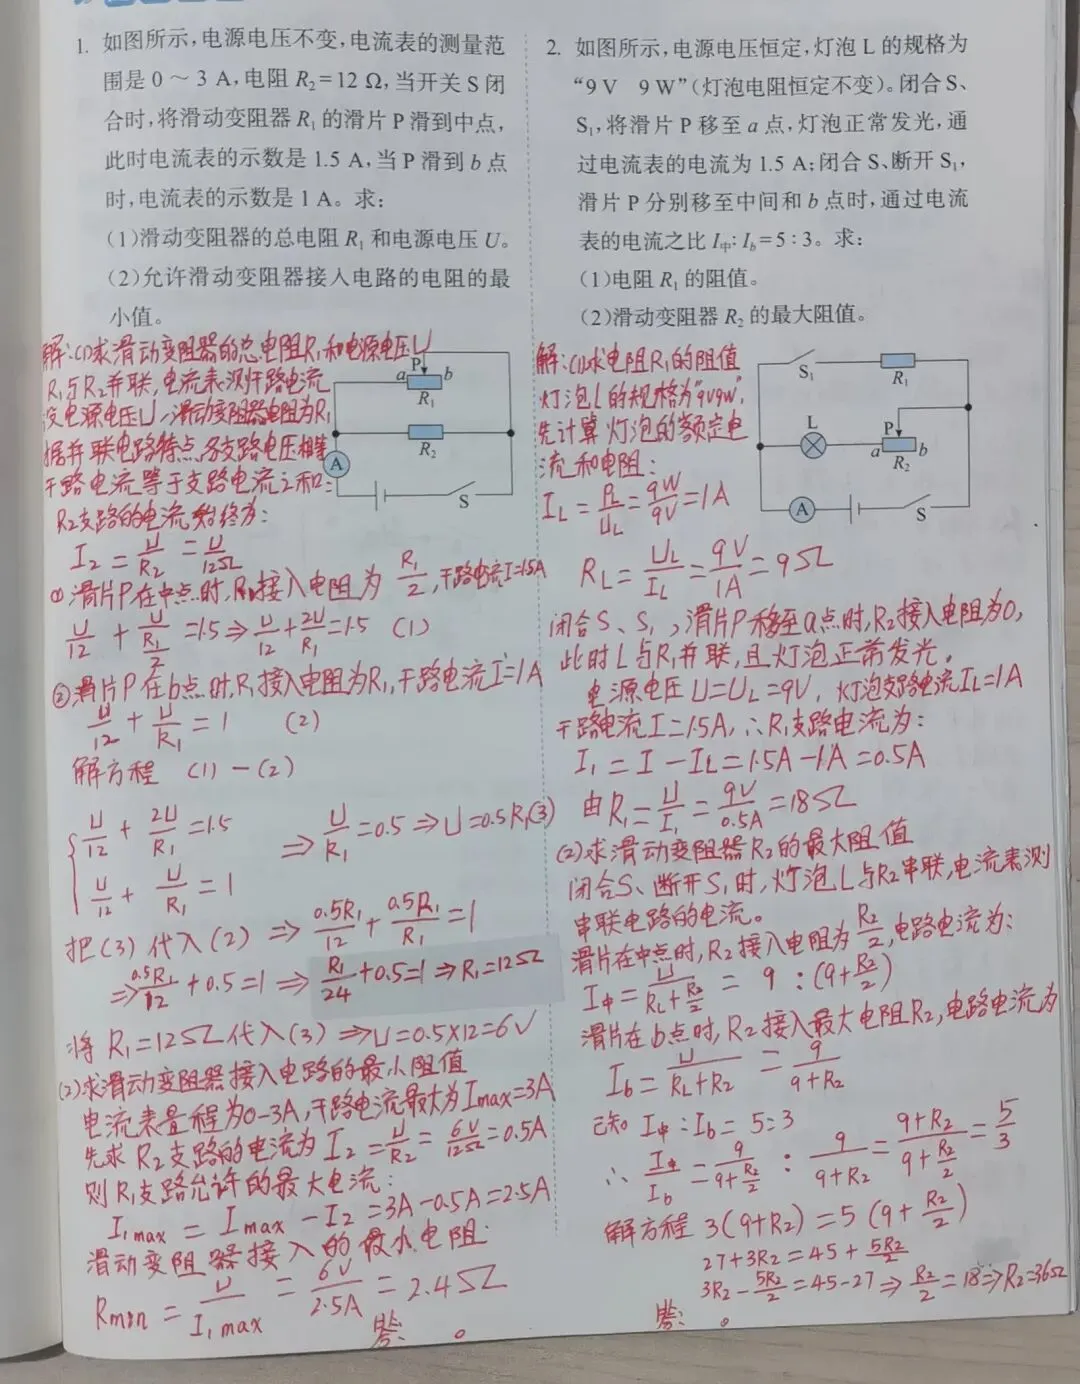 1. 如图所示,电源电压不变,电流表的测量范
围是 0～3 A,电阻 R₂=12 Ω,当开关 S 闭
合时,将滑动变阻器 R₁ 的滑片 P 滑到中点,
此时电流表的示数是 1.5 A,当 P 滑到 b 点
时,电流表的示数是 1 A。求:
(1)滑动变阻器的总电阻 R₁ 和电源电压 U。
(2)允许滑动变阻器接入电路的电阻的最
小值。
P
a b
R₁
R₂
A
S
解:(1)求滑动变阻器的总电阻R₁和电源电压U
R₁与R₂并联,电流表测干路电流
设电源电压U,滑动变阻器电阻为R₁
据并联电路特点,各支路电压相等
干路电流等于支路电流之和:
R₂支路的电流始终为:
I₂=U/R₂=U/12Ω
①滑片P在中点时,R₁接入电阻为 R₁/2,干路电流I=1.5A
U/12+U/(R₁/2)=1.5⇒U/12+2U/R₁=1.5 (1)
②滑片P在b点时,R₁接入电阻为R₁,干路电流I'=1A
U/12+U/R₁=1 (2)
解方程 (1)-(2)
{U/12+2U/R₁=1.5 ⇒ U/R₁=0.5⇒U=0.5R₁(3)
U/12+U/R₁=1
把(3)代入(2)⇒0.5R₁/12+0.5R₁/R₁=1
⇒0.5R₁/12+0.5=1⇒R₁/24+0.5=1⇒R₁=12Ω
将 R₁=12Ω代入(3)⇒U=0.5×12=6V
(2)求滑动变阻器接入电路的最小阻值
电流表量程为0-3A,干路电流最大为Imax=3A
先求R₂支路的电流为I₂=U/R₂=6V/12Ω=0.5A
则R₁支路允许的最大电流:
I₁max=Imax-I₂=3A-0.5A=2.5A
滑动变阻器接入的最小电阻:
Rmin=U/I₁max=6V/2.5A=2.4Ω
答: 。
2. 如图所示,电源电压恒定,灯泡 L 的规格为
“9 V 9 W”(灯泡电阻恒定不变)。闭合 S、
S₁,将滑片 P 移至 a 点,灯泡正常发光,通
过电流表的电流为 1.5 A;闭合 S、断开 S₁,
滑片 P 分别移至中间和 b 点时,通过电流
表的电流之比 I中∶I_b=5∶3。求:
(1)电阻 R₁ 的阻值。
(2)滑动变阻器 R₂ 的最大阻值。
S₁
R₁
L
P
a b
R₂
A
S
解:(1)求电阻R₁的阻值
灯泡L的规格为“9V9W”,
先计算灯泡的额定电
流和电阻:
I_L=P_L/U_L=9W/9V=1A
R_L=U_L/I_L=9V/1A=9Ω
闭合S、S₁,滑片P移至a点时,R₂接入电阻为0,
此时L与R₁并联,且灯泡正常发光。
电源电压U=U_L=9V,灯泡支路电流I_L=1A
干路电流I=1.5A,∴R₁支路电流为:
I₁=I-I_L=1.5A-1A=0.5A
由R₁=U/I₁=9V/0.5A=18Ω
(2)求滑动变阻器R₂的最大阻值
闭合S、断开S₁时,灯泡L与R₂串联,电流表测
串联电路的电流。
滑片在中点时,R₂接入电阻为R₂/2,电路电流为:
I中=U/(R_L+R₂/2)=9:(9+R₂/2)
滑片在b点时,R₂接入最大电阻R₂,电路电流为
I_b=U/(R_L+R₂)=9/(9+R₂)
已知 I中:I_b=5:3
∴ I中/I_b=9/(9+R₂/2):9/(9+R₂)=(9+R₂)/(9+R₂/2)=5/3
解方程 3(9+R₂)=5(9+R₂/2)
27+3R₂=45+5R₂/2
3R₂-5R₂/2=45-27⇒R₂/2=18⇒R₂=36Ω
答: 。